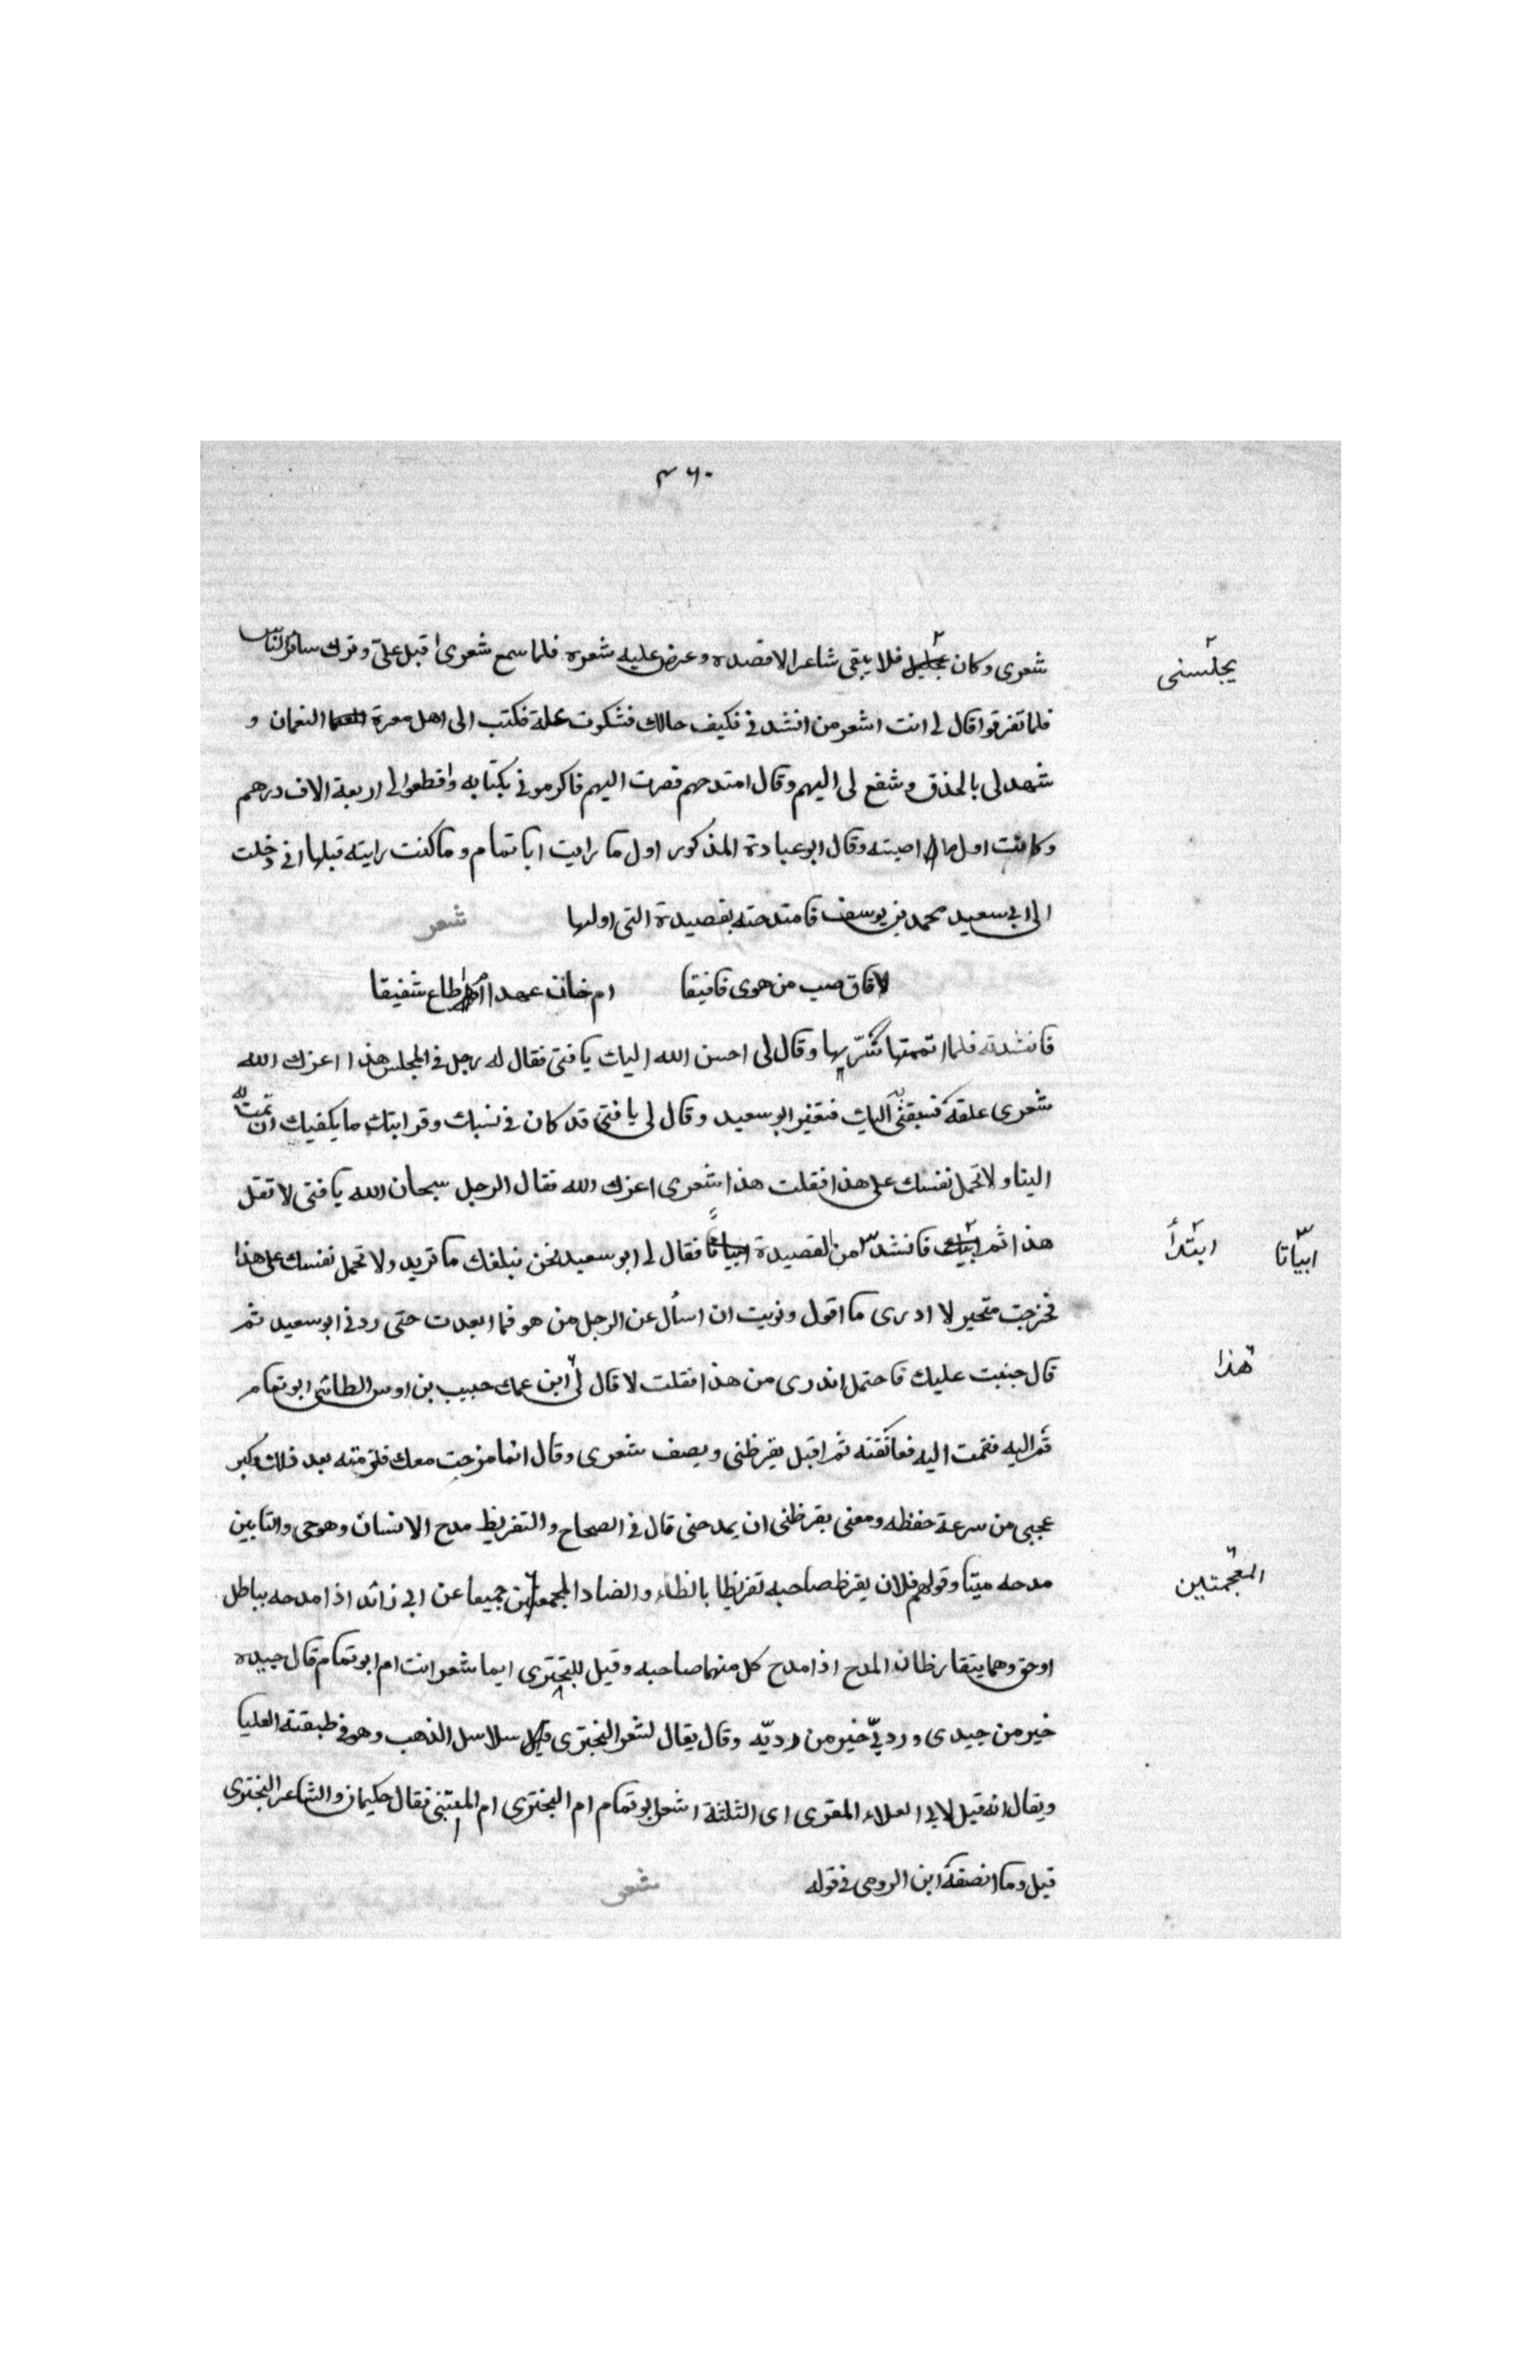 ٤٦٠
شعرى وكان يجلسنى فلا يبقى شاعر الا قصده وعرض عليه شعره فلما سمع شعرى اقبل علىّ وترك سائر الناس
فلما تفرقوا قال لى انت اشعر من انشدنى فكيف حالك فشكوت علة فكتب الى اهل معرة النعمان و
شهد لى بالحذق وشفع لى اليهم وقال امتدحهم فصرت اليهم فاكرمونى بكتابه واقطعوا لى اربعة الاف درهم
وكانت اول مال اصبته وقال ابو عبادة المذكور اول ما رايت ابا تمام وما كنت رايته قبلها انى دخلت
الى ابى سعيد محمد بن يوسف فامتدحته بقصيدة التى اولها شعر
لافاق صب من هوى فافيقا ام خان عهدا ام اطاع شفيقا
فانشدته فلما اتممتها سُرّ بها وقال لى احسن الله اليك يا فتى فقال له رجل فى المجلس هذا اعزك الله
شعرى علقه فسبقنى به اليك فتغير ابو سعيد وقال لى يا فتى قد كان فى نسبك وقرابتك ما يكفيك ان تمت به
الينا ولا تحمل نفسك على هذا فقلت هذا شعرى اعزك الله فقال الرجل سبحان الله يا فتى لا تقل
هذا ثم ابتدأ فانشد من القصيدة ابياتا فقال لى ابو سعيد نحن نبلغك ما تريد ولا تحمل نفسك على هذا
فخرجت متحير لا ادرى ما اقول ونويت ان اسأل عن الرجل من هو فما ابعدت حتى ردنى ابو سعيد ثم
قال جنبت عليك فاحتمل اتدرى من هذا فقلت لا قال لى ابن عمك حبيب بن اوس الطائى ابو تمام
قم اليه فقمت اليه فعانقته ثم اقبل يقرظنى ويصف شعرى وقال انما مزحت معك فلزمته بعد ذلك وكبر
عجبى من سرعة حفظه ومعنى يقرظنى ان يمدحنى قال فى الصحاح والتقريظ مدح الانسان وهو حى والتابين
مدحه ميتا وقولهم فلان يقرظ صاحبه تقريظا بالظاء والضاد المجمعتين جميعا عن ابى زائد اذا مدحه بباطل
او حق وهما يتقارظان المدح اذا مدح كل منهما صاحبه وقيل للبحترى ايما شعر انت ام ابو تمام قال جيده
خير من جيدى ورديّى خير من رديّه وقال يقال لشعر البحترى قيل سلاسل الذهب وهو فى طبقته العليا
ويقال انه قيل لابى العلاء المعرى اى الثلثة اشعر ابو تمام ام البحترى ام المتنبى فقال حكيمان والشاعر البحترى
قيل وما انصفه ابن الرومى فى قوله شعر
يجلسنى
ابتدأ
ابياتا
هذا
المعجمتين